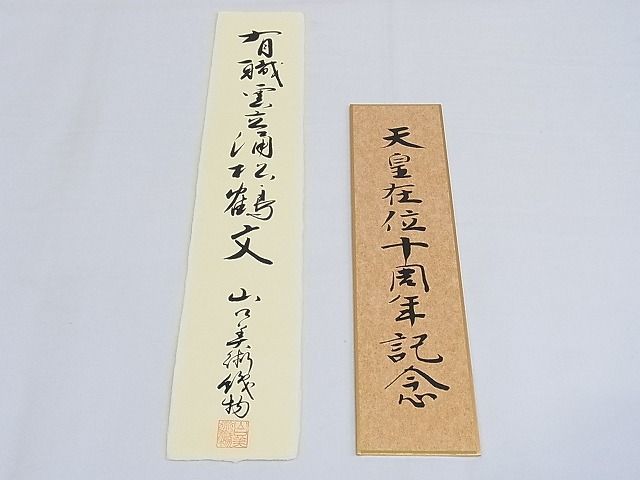 有職雲立涌松鶴文
山口美術織物
天皇在位十周年記念